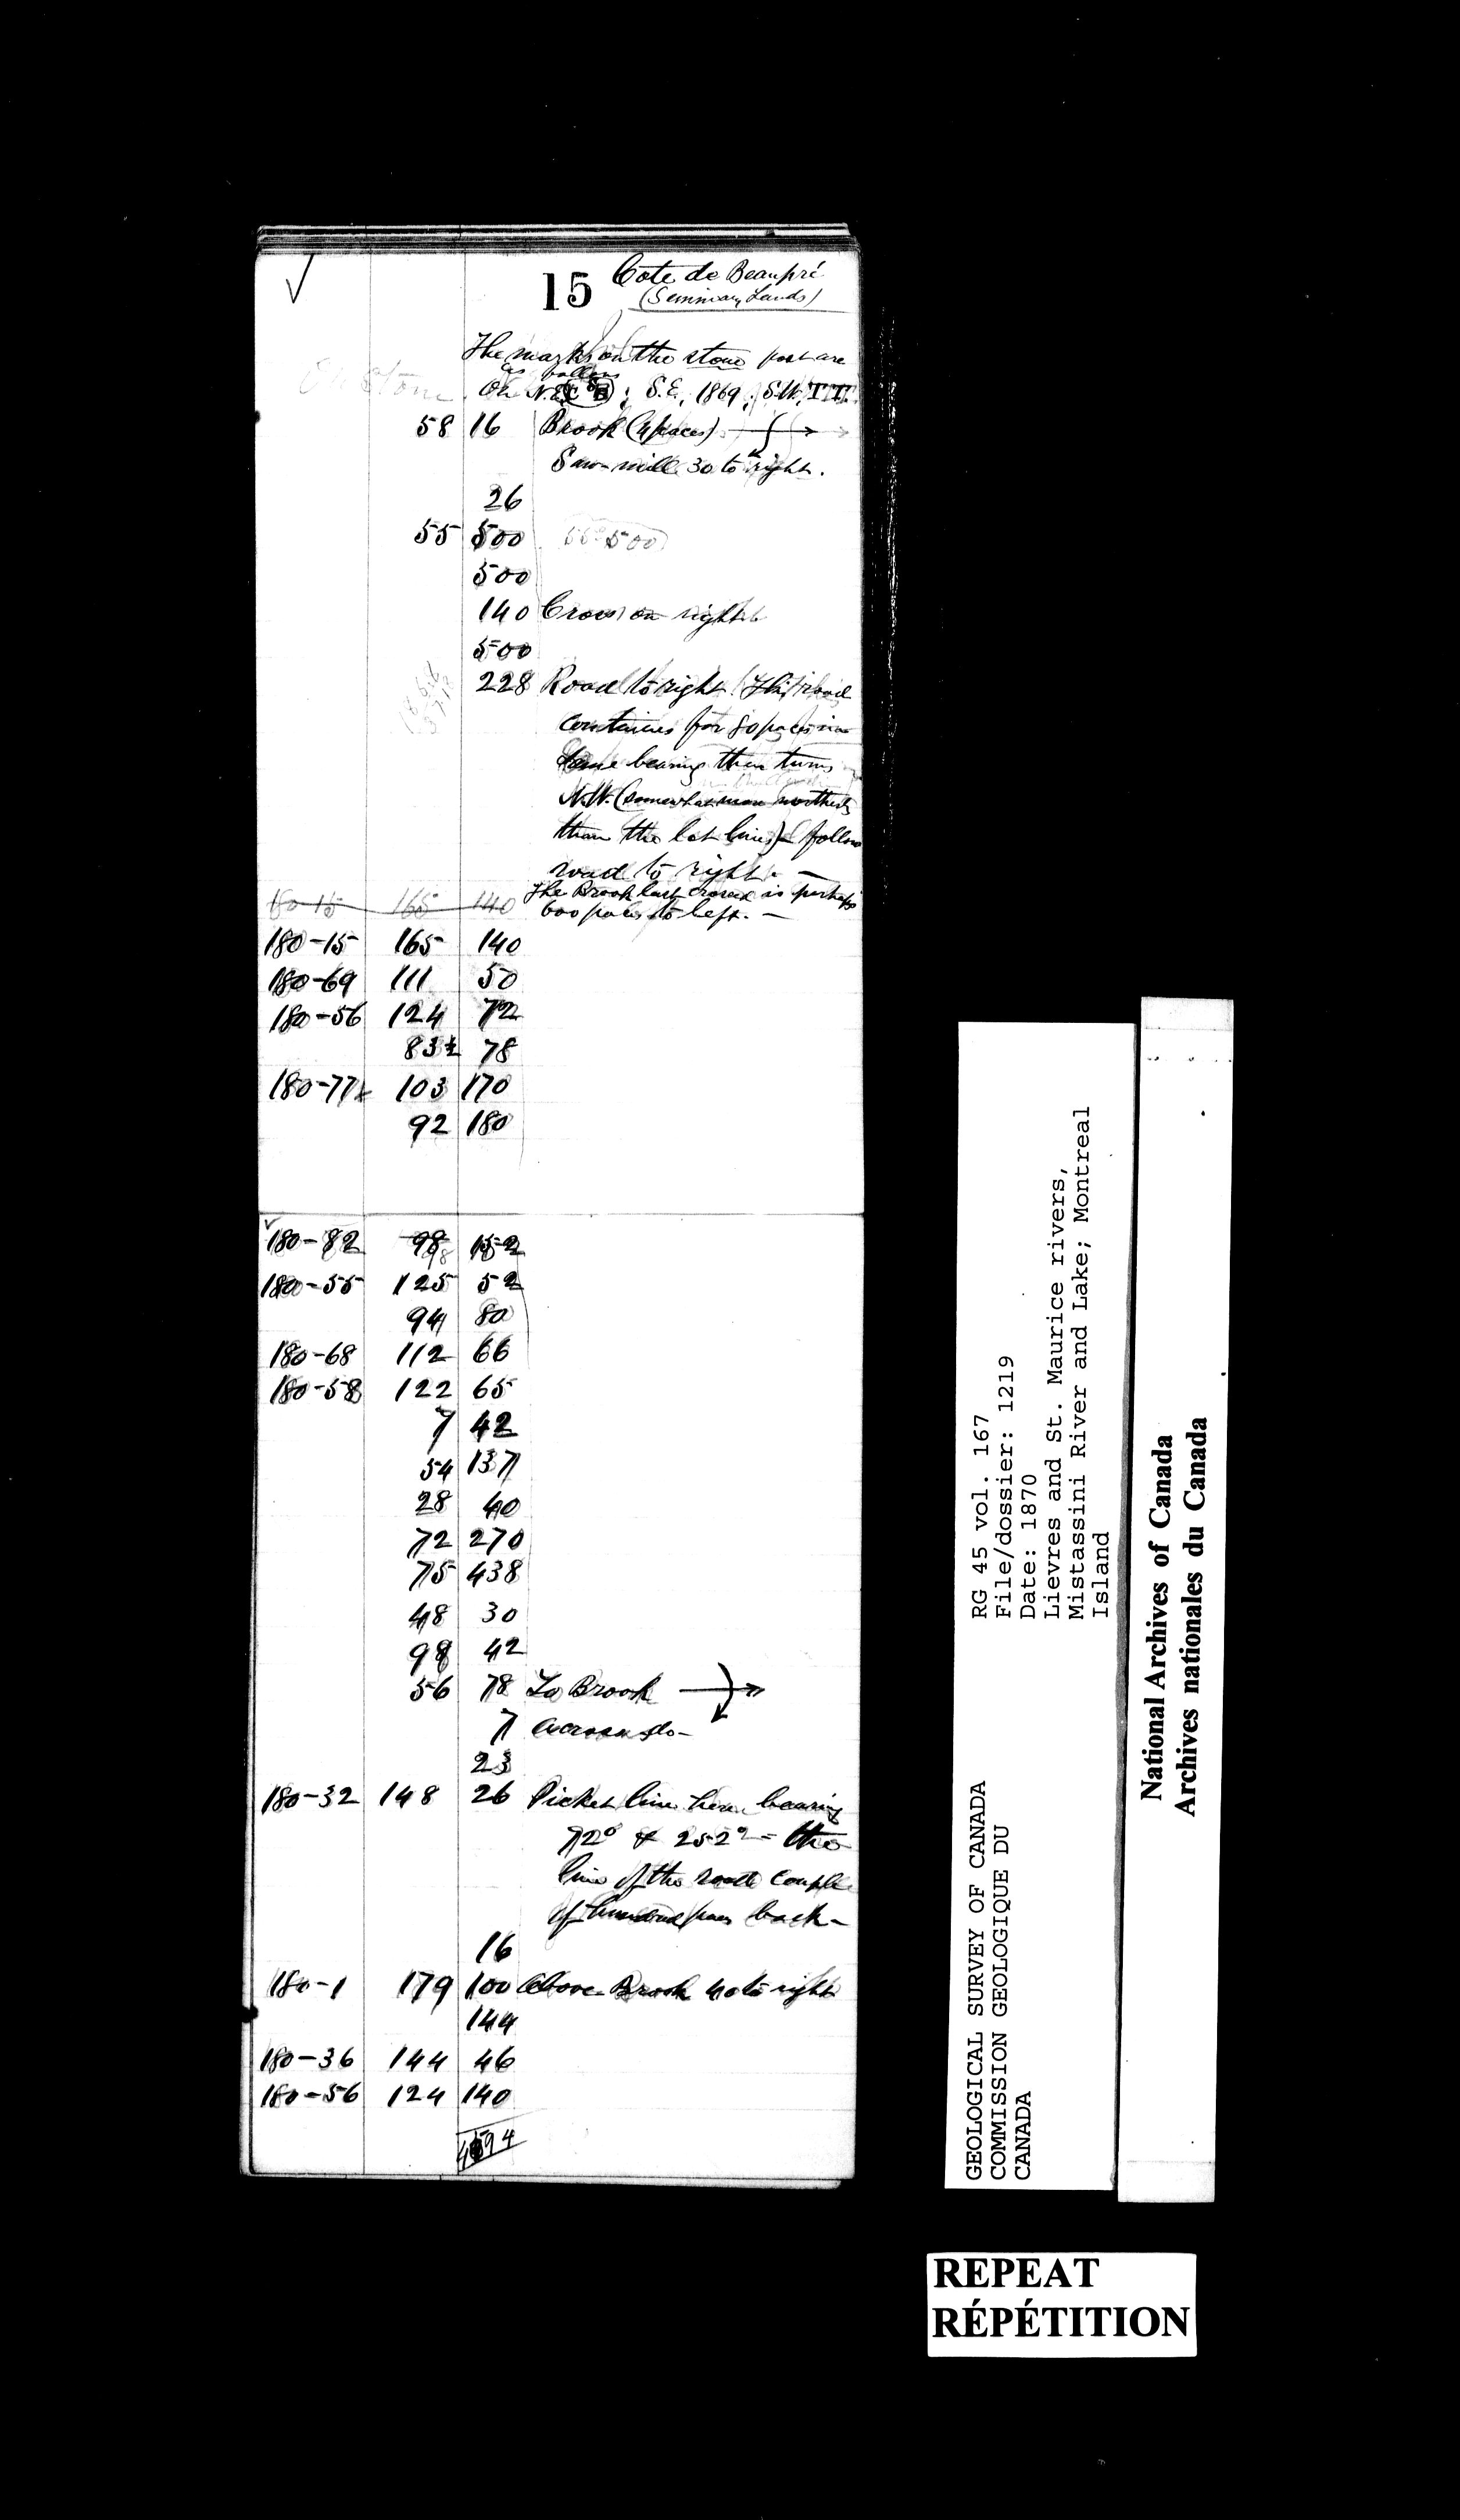 15 Cote de Beaupré
(Seminary Lands)
The marks on the stone post are
as follows
On N.E. ; S.E. 1869 ; S.W. T.T.
58 16 Brook (4 paces)
Saw-mill 30 to right.
26
55 500 55° 500
500
140 Cross on right
500
228 Road to right (This road
continues for 80 paces in
same bearing then turns
N.W. (somewhat more northerly
than the lot lines) - follow
road to right. -
The Brook last crossed is perhaps
600 paces to left. -
180-15 165 140
180-15 165 140
180-69 111 50
180-56 124 72
83½ 78
180-77 103 170
92 180
180-82 98 152
180-55 125 52
94 80
180-68 112 66
180-58 122 65
7 42
54 137
28 40
72 270
75 438
48 30
98 42
56 78 To Brook
7 across do-
23
180-32 148 26 Picket line here bearing
72° & 252° = the
line of the road couple
of hundred paces back-
16
180-1 179 100 Above Brook 40 to right
144
180-36 144 46
180-56 124 140
4594
GEOLOGICAL SURVEY OF CANADA
COMMISSION GEOLOGIQUE DU
CANADA
RG 45 vol. 167
File/dossier: 1219
Date: 1870
Lievres and St. Maurice rivers,
Mistassini River and Lake; Montreal
Island
National Archives of Canada
Archives nationales du Canada
REPEAT
RÉPÉTITION